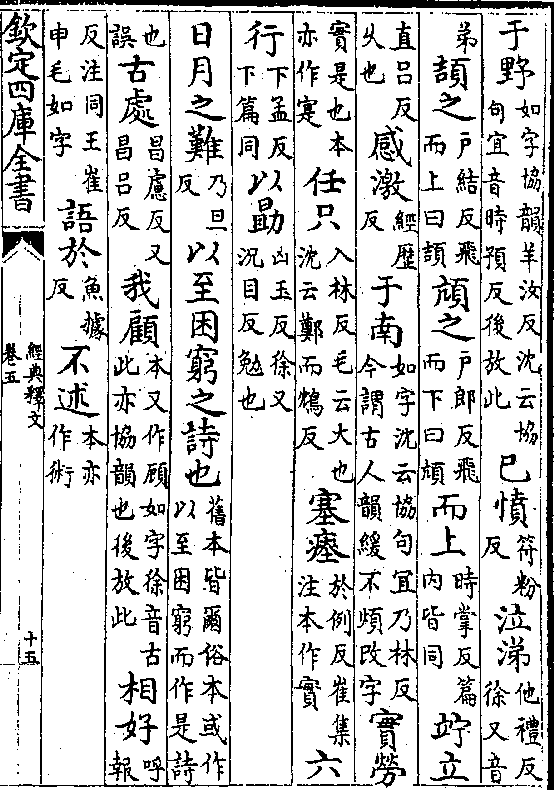 于野如字協韻羊汝反沈云協句宜音時預反後放此已憤符粉反泣涕他禮反徐又音
弟頡之户結反飛而上曰頡頏之户郎反飛而下曰頏而上時掌反篇内皆同竚立
直吕反乆也感激經歴反于南如字沈云協句宜乃林反今謂古人韻緩不煩改字實勞
實是也本亦作寔任只入林反毛云大也沈云鄭而鴆反塞瘞於例反崔集注本作實六
行下孟反下篇同以勖凶玉反徐又況目反勉也
日月之難乃旦反以至困窮之詩也舊本皆爾俗本或作以至困窮而作是詩
也誤古處昌慮反又昌吕反我顧本又作顧如字徐音古此亦協韻也後放此相好呼報
反注同王崔申毛如字語於魚據反不述本亦作術
欽定四庫全書
經典釋文
卷五
十五